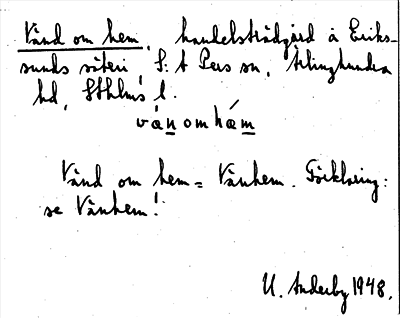 Vänd om hem, handelsträdgård å Eriks-
sunds säteri, S:t Pers sn, Ärlinghundra
hd, Sthlms l.
vä́n om hä́m
Vänd om hem = Vänhem. Förklaring:
se Vänhem!
U. Anderby 1948.